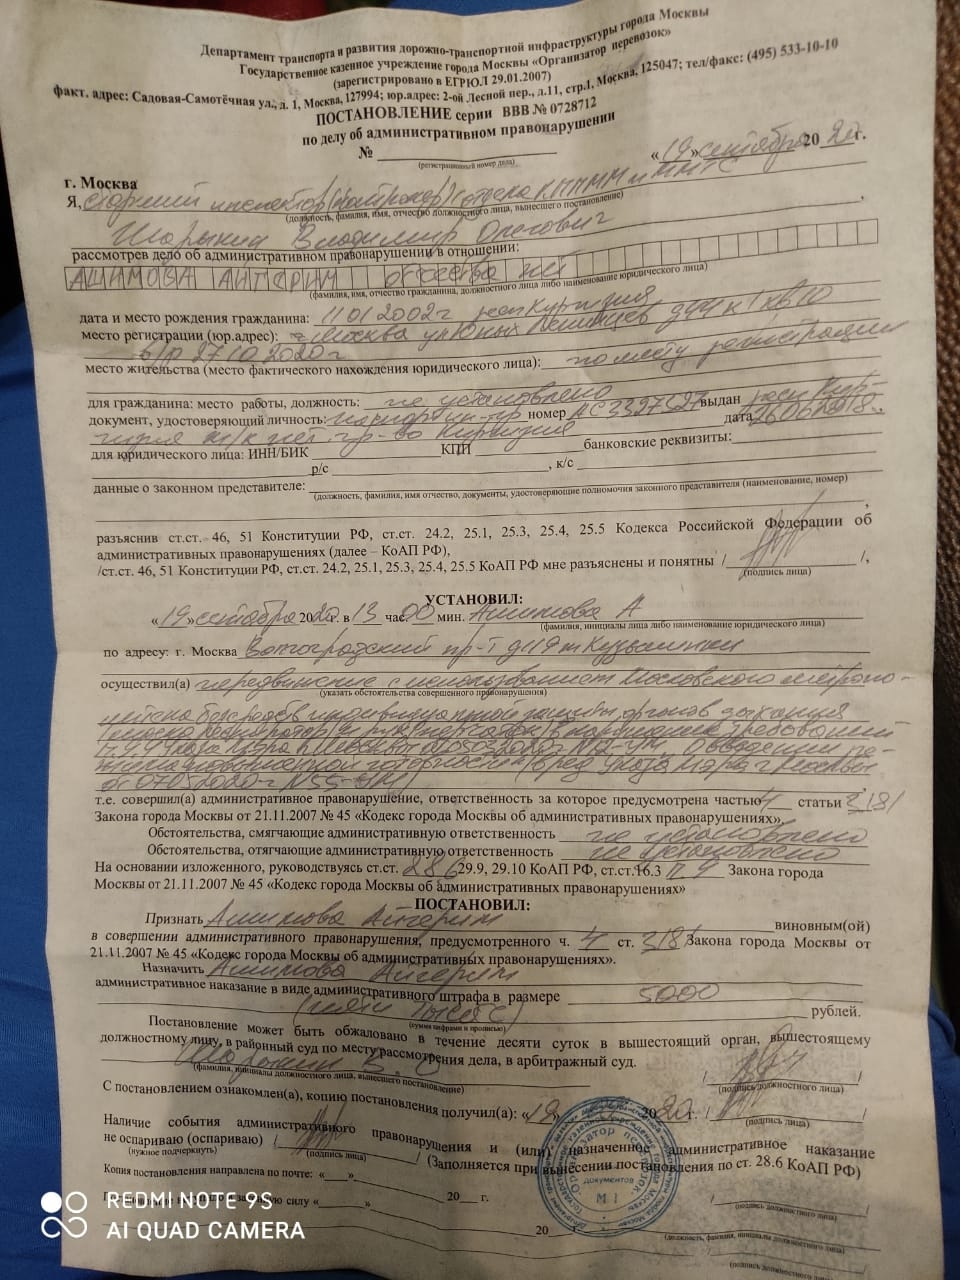 Департамент транспорта и развития дорожно-транспортной инфраструктуры города Москвы
Государственное казенное учреждение города Москвы «Организатор перевозок»
(зарегистрировано в ЕГРЮЛ 29.01.2007)
факт. адрес: Садовая-Самотёчная ул., д. 1, Москва, 127994; юр.адрес: 2-ой Лесной пер., д.11, стр.1, Москва, 125047; тел/факс: (495) 533-10-10
ПОСТАНОВЛЕНИЕ серии ВВВ № 0728712
по делу об административном правонарушении
№
(регистрационный номер дела)
«19» сентября 2020 г.
г. Москва
Я, старший инспектор (контролер) отдела
(должность, фамилия, имя, отчество должностного лица, вынесшего постановление)
Владимир Олегович
рассмотрев дело об административном правонарушении в отношении:
АШИМОВА АЙГЕРИМ отчества нет
(фамилия, имя, отчество гражданина, должностного лица либо наименование юридического лица)
дата и место рождения гражданина: 11 01 2002г респ Киргизия
место регистрации (юр.адрес): г Москва ул Юных Ленинцев д44 к1 кв10
в/р 27.10.2020г
место жительства (место фактического нахождения юридического лица): по месту регистрации
для гражданина: место работы, должность: не установлено
документ, удостоверяющий личность: паспорт ин-гр номер АС3327527 выдан респ Кир-
дата 26062018
гизия м/к нет. гр-во Киргизия
для юридического лица: ИНН/БИК КПП банковские реквизиты:
р/с , к/с
данные о законном представителе:
(должность, фамилия, имя отчество, документы, удостоверяющие полномочия законного представителя (наименование, номер)
разъяснив ст.ст. 46, 51 Конституции РФ, ст.ст. 24.2, 25.1, 25.3, 25.4, 25.5 Кодекса Российской Федерации об
административных правонарушениях (далее – КоАП РФ),
/ст.ст. 46, 51 Конституции РФ, ст.ст. 24.2, 25.1, 25.3, 25.4, 25.5 КоАП РФ мне разъяснены и понятны / /,
(подпись лица)
УСТАНОВИЛ:
«19» сентября 2020г. в 13 час. 00 мин. Ашимова А
(фамилия, инициалы лица либо наименование юридического лица)
по адресу: г. Москва Волгоградский пр-т д119 м Кузьминки
осуществил(а) передвижение с использованием Московского метропо-
(указать обстоятельства совершенного правонарушения)
литена без средств индивидуальной защиты органов дыхания
(маска респиратор) и рук (перчатки) в нарушение требований
Указа Мэра г Москвы от 05032020г N12-УМ О введении ре-
жима повышенной готовности (в ред Указа Мэра г Москвы
от 07052020г N55-УМ)
т.е. совершил(а) административное правонарушение, ответственность за которое предусмотрена частью 4 статьи 3181
Закона города Москвы от 21.11.2007 № 45 «Кодекс города Москвы об административных правонарушениях».
Обстоятельства, смягчающие административную ответственность не установлено
Обстоятельства, отягчающие административную ответственность не установлено
На основании изложенного, руководствуясь ст.ст. 28.6 29.9, 29.10 КоАП РФ, ст.ст.16.3 Закона города
Москвы от 21.11.2007 № 45 «Кодекс города Москвы об административных правонарушениях»
ПОСТАНОВИЛ:
Признать Ашимова Айгерим виновным(ой)
в совершении административного правонарушения, предусмотренного ч. 4 ст. 3181 Закона города Москвы от
21.11.2007 № 45 «Кодекс города Москвы об административных правонарушениях».
Назначить Ашимова Айгерим
административное наказание в виде административного штрафа в размере 5000
(пять тысяч) рублей.
(сумма цифрами и прописью)
Постановление может быть обжаловано в течение десяти суток в вышестоящий орган, вышестоящему
должностному лицу, в районный суд по месту рассмотрения дела, в арбитражный суд.
(фамилия, инициалы должностного лица, вынесшего постановление)
(подпись должностного лица)
С постановлением ознакомлен(а), копию постановления получил(а): «19» 2020г.
(подпись лица)
Наличие события административного правонарушения и (или) назначенное административное наказание
не оспариваю (оспариваю) / / (Заполняется при вынесении постановления по ст. 28.6 КоАП РФ)
(нужное подчеркнуть) (подпись лица)
Копия постановления направлена по почте: « » 20 г.
(подпись должностного лица)
силу « » 20 г.
(должность, фамилия, инициалы должностного лица)
(подпись должностного лица)
Организатор перевозок
документов
М 1
REDMI NOTE 9S
AI QUAD CAMERA